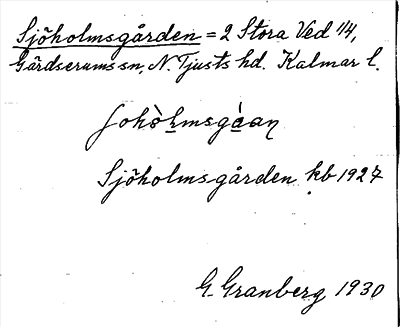 Sjöholmsgården = 2 Stora Ved 1/4,
Gärdserums sn, N. Tjusts hd. Kalmar l.
Sjöholmsgården kb 1927
G. Granberg 1930